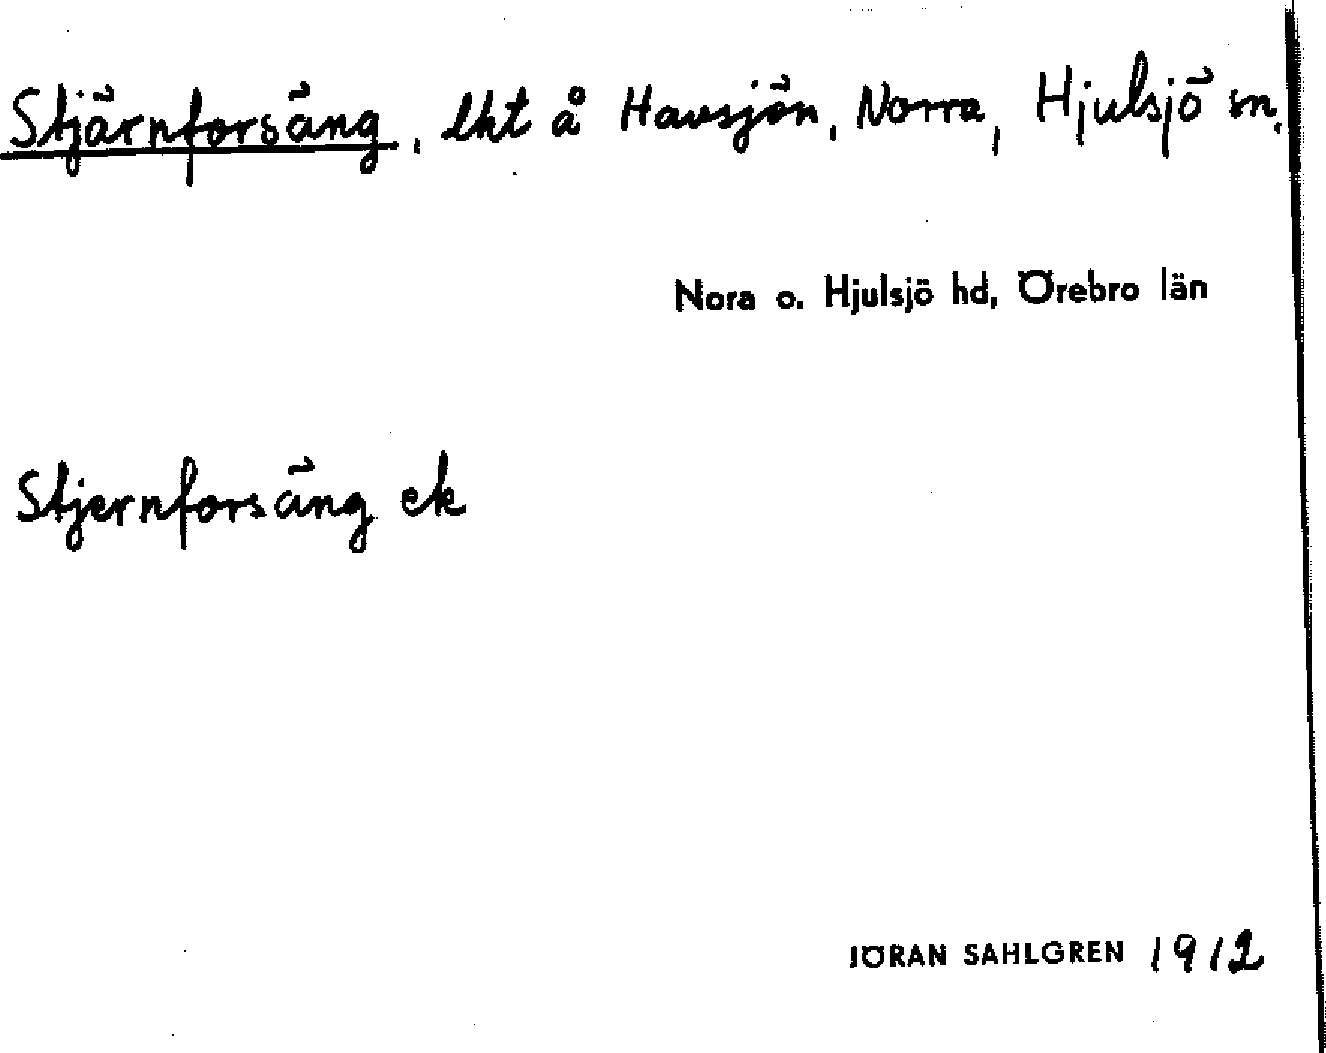 Stjärnforsäng, lht å Havsjön, Norra, Hjulsjö sn.
Nora o. Hjulsjö hd, Örebro län
Stjernforsäng ek
JÖRAN SAHLGREN 1912